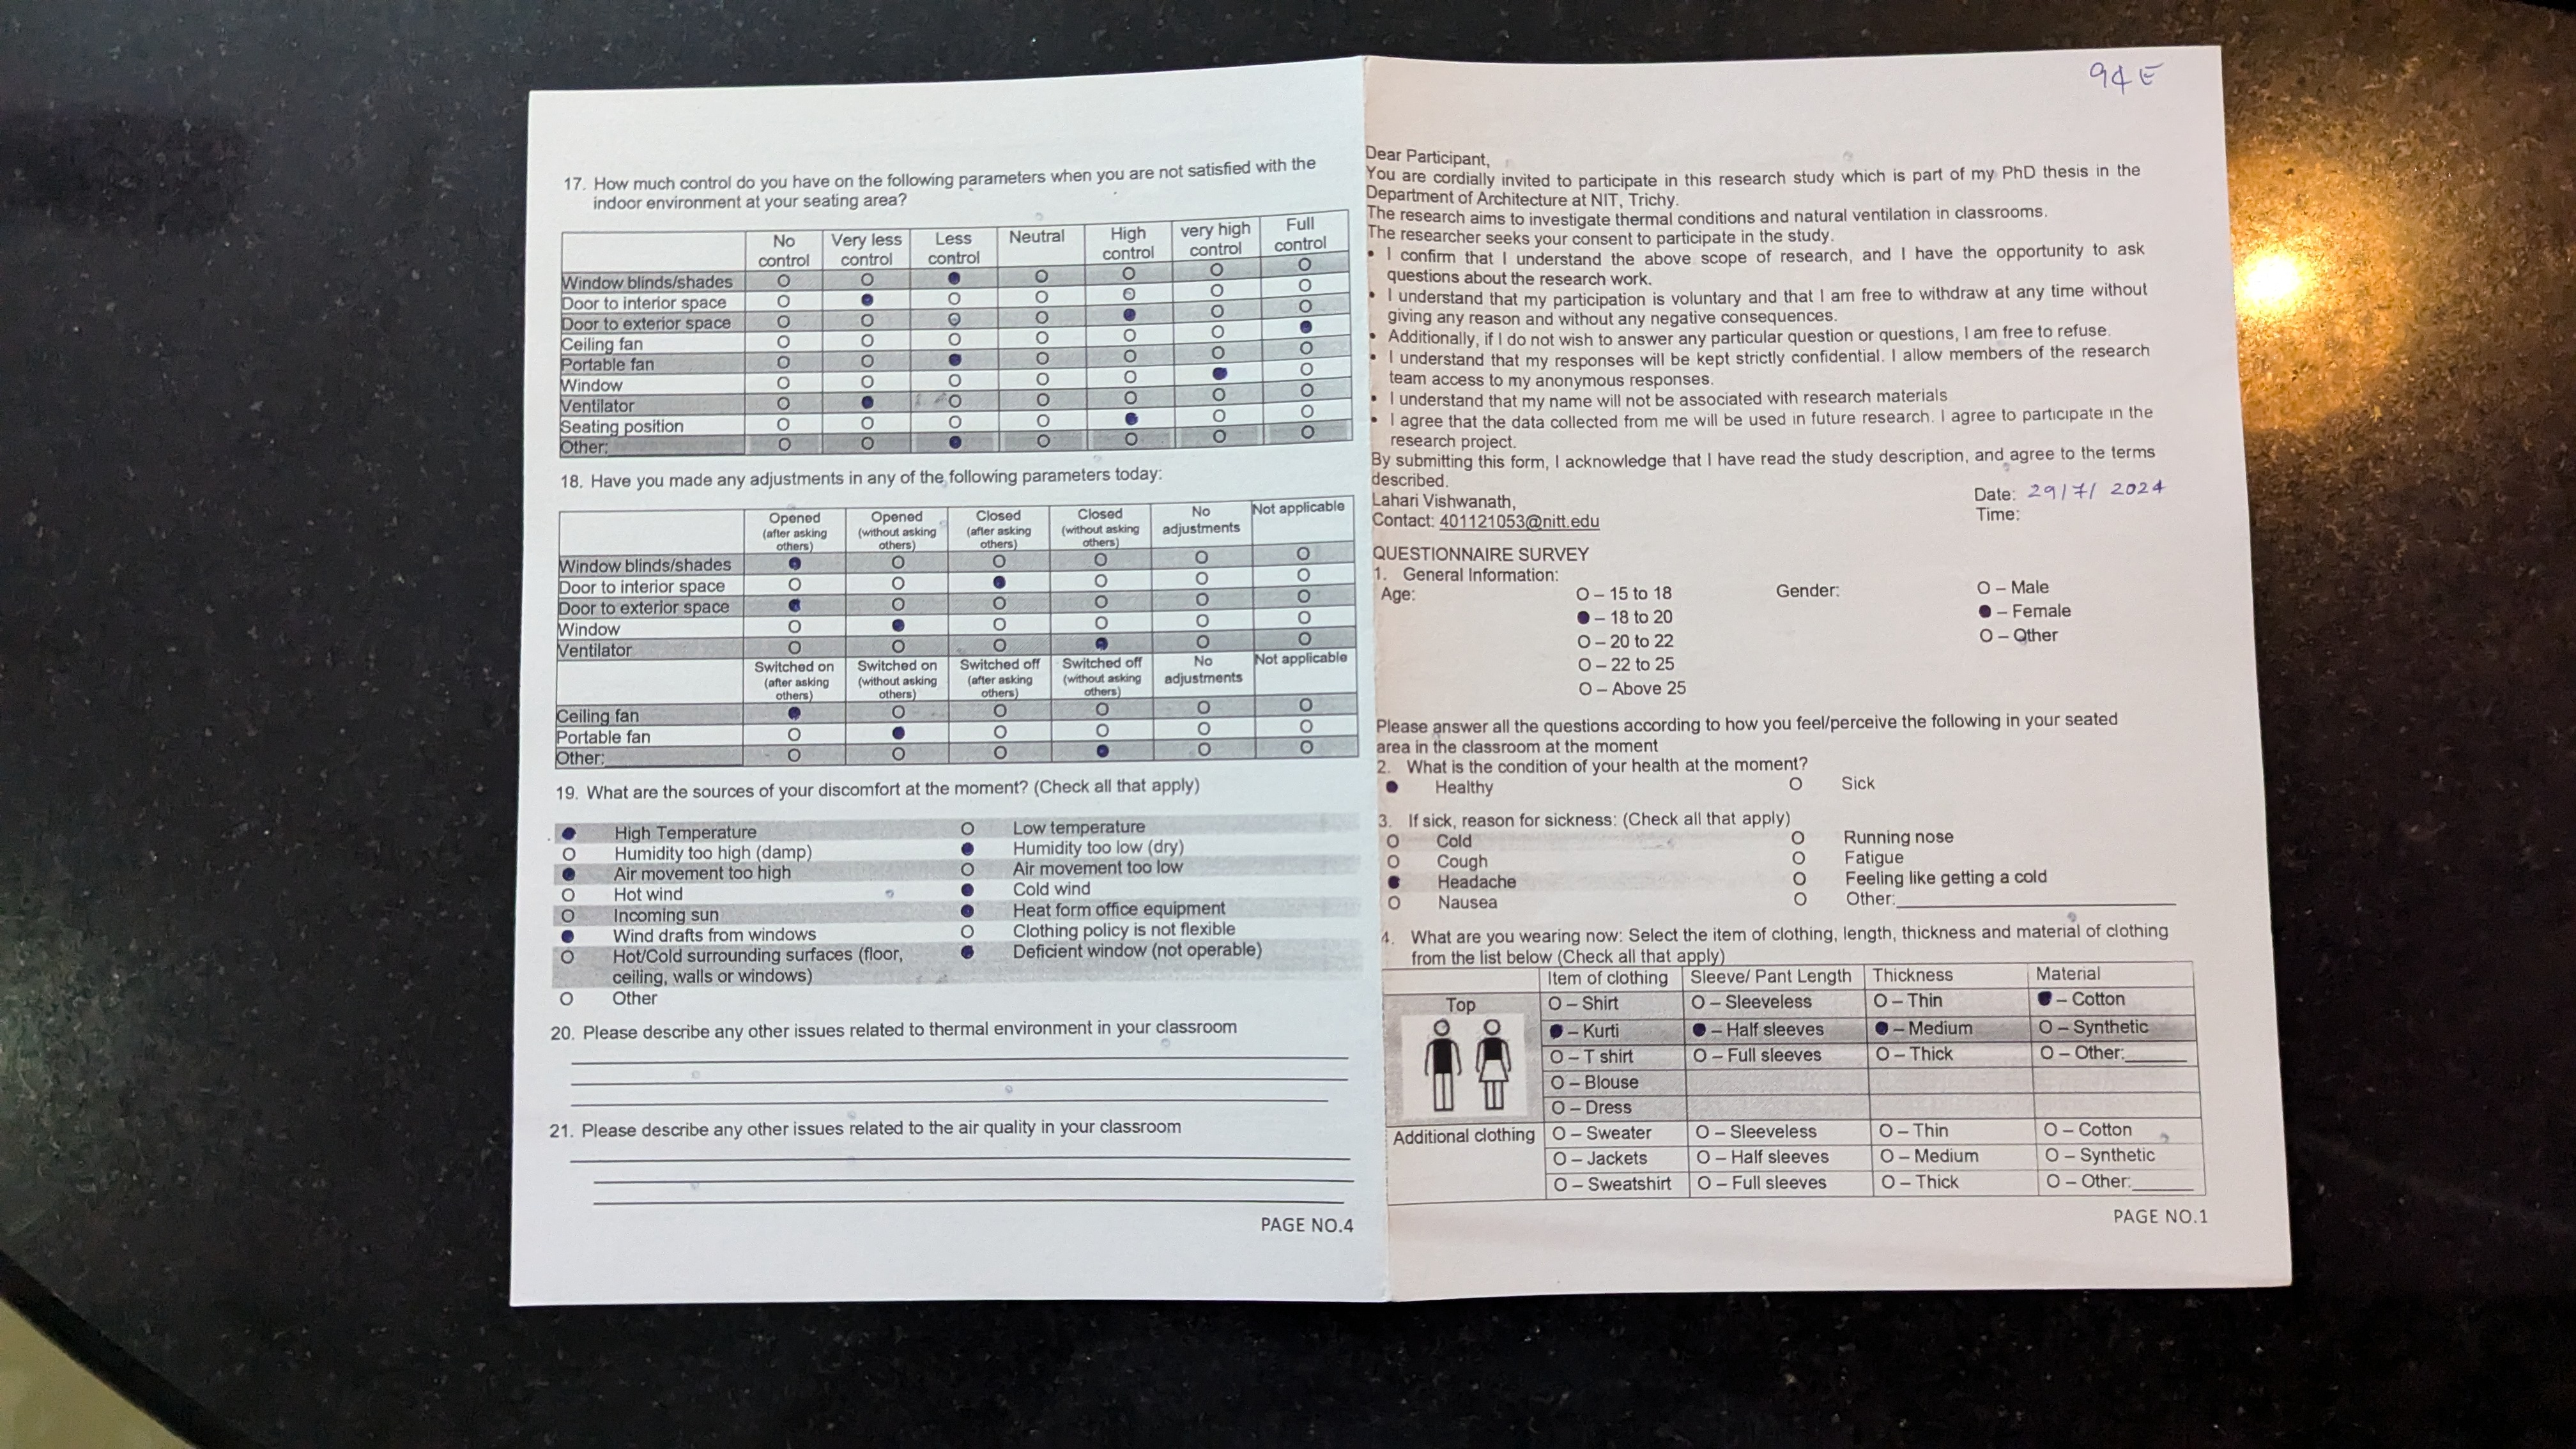 17. How much control do you have on the following parameters when you are not satisfied with the
indoor environment at your seating area?
No control Very less control Less control Neutral High control very high control Full control
Window blinds/shades O O ● O O O O
Door to interior space O ● O O O O O
Door to exterior space O O O O ● O O
Ceiling fan O O O O O O ●
Portable fan O O ● O O O O
Window O O O O O ● O
Ventilator O ● O O O O O
Seating position O O O O ● O O
Other: O O ● O O O O
18. Have you made any adjustments in any of the following parameters today:
Opened (after asking others) Opened (without asking others) Closed (after asking others) Closed (without asking others) No adjustments Not applicable
Window blinds/shades ● O O O O O
Door to interior space O O ● O O O
Door to exterior space ● O O O O O
Window O ● O O O O
Ventilator O O O ● O O
Switched on (after asking others) Switched on (without asking others) Switched off (after asking others) Switched off (without asking others) No adjustments Not applicable
Ceiling fan ● O O O O O
Portable fan O ● O O O O
Other: O O O ● O O
19. What are the sources of your discomfort at the moment? (Check all that apply)
● High Temperature O Low temperature
O Humidity too high (damp) ● Humidity too low (dry)
● Air movement too high O Air movement too low
O Hot wind ● Cold wind
O Incoming sun ● Heat form office equipment
● Wind drafts from windows O Clothing policy is not flexible
O Hot/Cold surrounding surfaces (floor, ● Deficient window (not operable)
ceiling, walls or windows)
O Other
20. Please describe any other issues related to thermal environment in your classroom
21. Please describe any other issues related to the air quality in your classroom
PAGE NO.4
94E
Dear Participant,
You are cordially invited to participate in this research study which is part of my PhD thesis in the
Department of Architecture at NIT, Trichy.
The research aims to investigate thermal conditions and natural ventilation in classrooms.
The researcher seeks your consent to participate in the study.
• I confirm that I understand the above scope of research, and I have the opportunity to ask
questions about the research work.
• I understand that my participation is voluntary and that I am free to withdraw at any time without
giving any reason and without any negative consequences.
• Additionally, if I do not wish to answer any particular question or questions, I am free to refuse.
• I understand that my responses will be kept strictly confidential. I allow members of the research
team access to my anonymous responses.
• I understand that my name will not be associated with research materials
• I agree that the data collected from me will be used in future research. I agree to participate in the
research project.
By submitting this form, I acknowledge that I have read the study description, and agree to the terms
described.
Lahari Vishwanath, Date: 29/7/ 2024
Contact: 401121053@nitt.edu Time:
QUESTIONNAIRE SURVEY
1. General Information:
Age: O – 15 to 18 Gender: O – Male
● – 18 to 20 ● – Female
O – 20 to 22 O – Other
O – 22 to 25
O – Above 25
Please answer all the questions according to how you feel/perceive the following in your seated
area in the classroom at the moment
2. What is the condition of your health at the moment?
● Healthy O Sick
3. If sick, reason for sickness: (Check all that apply)
O Cold O Running nose
O Cough O Fatigue
● Headache O Feeling like getting a cold
O Nausea O Other:
4. What are you wearing now: Select the item of clothing, length, thickness and material of clothing
from the list below (Check all that apply)
Item of clothing Sleeve/ Pant Length Thickness Material
Top O – Shirt O – Sleeveless O – Thin ● – Cotton
● – Kurti ● – Half sleeves ● – Medium O – Synthetic
O – T shirt O – Full sleeves O – Thick O – Other:
O – Blouse
O – Dress
Additional clothing O – Sweater O – Sleeveless O – Thin O – Cotton
O – Jackets O – Half sleeves O – Medium O – Synthetic
O – Sweatshirt O – Full sleeves O – Thick O – Other:
PAGE NO.1